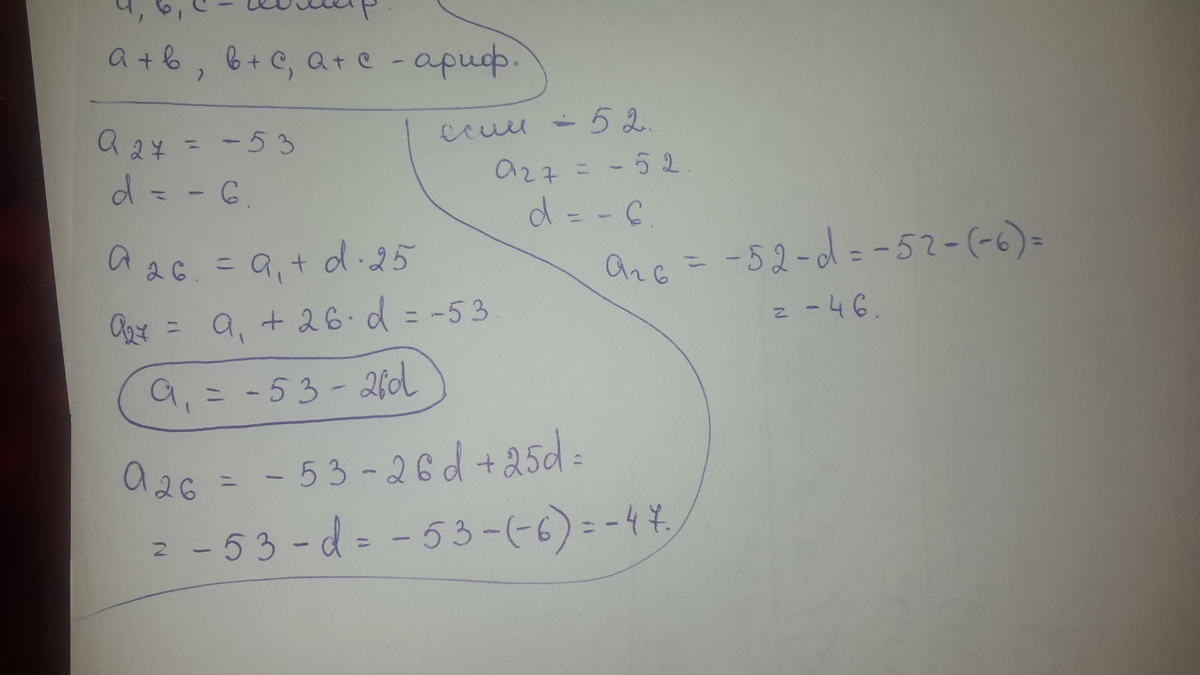 a, в, с - геометр.
а + в, в + с, а + с - ариф.
a₂₇ = -53
d = -6.
a₂₆. = a₁ + d · 25
a₂₇ = a₁ + 26 · d = -53.
a₁ = -53 - 26d
a₂₆ = -53 - 26d + 25d =
= -53 - d = -53 - (-6) = -47.
если -52.
a₂₇ = -52.
d = -6.
a₂₆ = -52 - d = -52 - (-6) =
= -46.